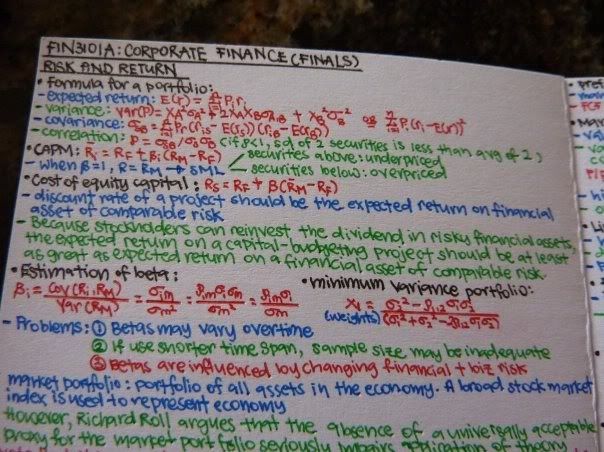 FIN3101A: CORPORATE FINANCE (FINALS)
RISK AND RETURN
• Formula for a portfolio:
- expected return: E(r) = Σ Pi ri
- variance: Var(P) = XA²σA² + 2XAXBσA,B + XB²σB² or Σ Pi (ri - E(r))²
- covariance: σAB = Σ Pr (riS - E(rS)) (riB - E(rB))
- correlation: ρ = σAB/σAσB (if ρ<1, sd of 2 securities is less than avg of 2)
• CAPM: Ri = RF + βi (RM - RF) securities above: underpriced
- when β=1, R = RM → SML securities below: overpriced
• Cost of equity capital: RS = RF + β(RM - RF)
- discount rate of a project should be the expected return on financial
asset of comparable risk
- Because stockholders can reinvest the dividend in risky financial assets,
the expected return on a capital-budgeting project should be at least
as great as expected return on a financial asset of comparable risk
• Estimation of beta: • minimum variance portfolio:
βi = Cov(Ri, RM) / Var(RM) = σim/σm² = ρimσiσm/σm² = ρimσi/σm X1 (weights) = σ2² - ρ12σ1σ2 / (σ1² + σ2² - 2ρ12σ1σ2)
- Problems: ① Betas may vary overtime
② If use shorter time span, sample size may be inadequate
③ Betas are influenced by changing financial + biz risk
market portfolio: portfolio of all assets in the economy. A broad stock market
index is used to represent economy
However, Richard Roll argues that the absence of a universally acceptable
proxy for the market portfolio seriously impairs application of theory